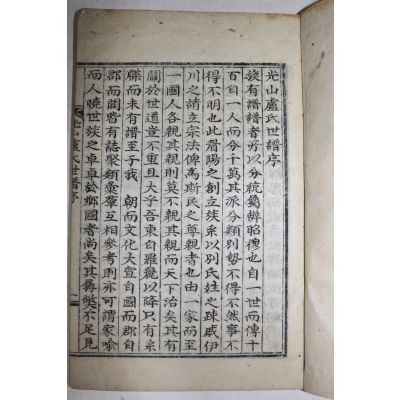 光山盧氏世譜序
族有譜譜者所以分統屬辨昭穆也自一世而傳十
百自一人而分千萬其派分類別勢不得不然事不
得不明也此眉陽之創立族系以別氏姓之疎戚伊
川之請立宗法俾高斯民之尊親者也由一家而至
一國人各親其親則莫不親其親而天下治矣其有
關於世道豈不重且大乎吾東自羅麗以降只有系
牒而未有譜至于我 朝而文化大宣自國而郡自
郡而閭皆有誌聚類彙羣互相參考則亦可謂家喩
而人曉世族之卓卓於鄉國者尚矣其舞獘不足見
光山盧氏世譜序 一